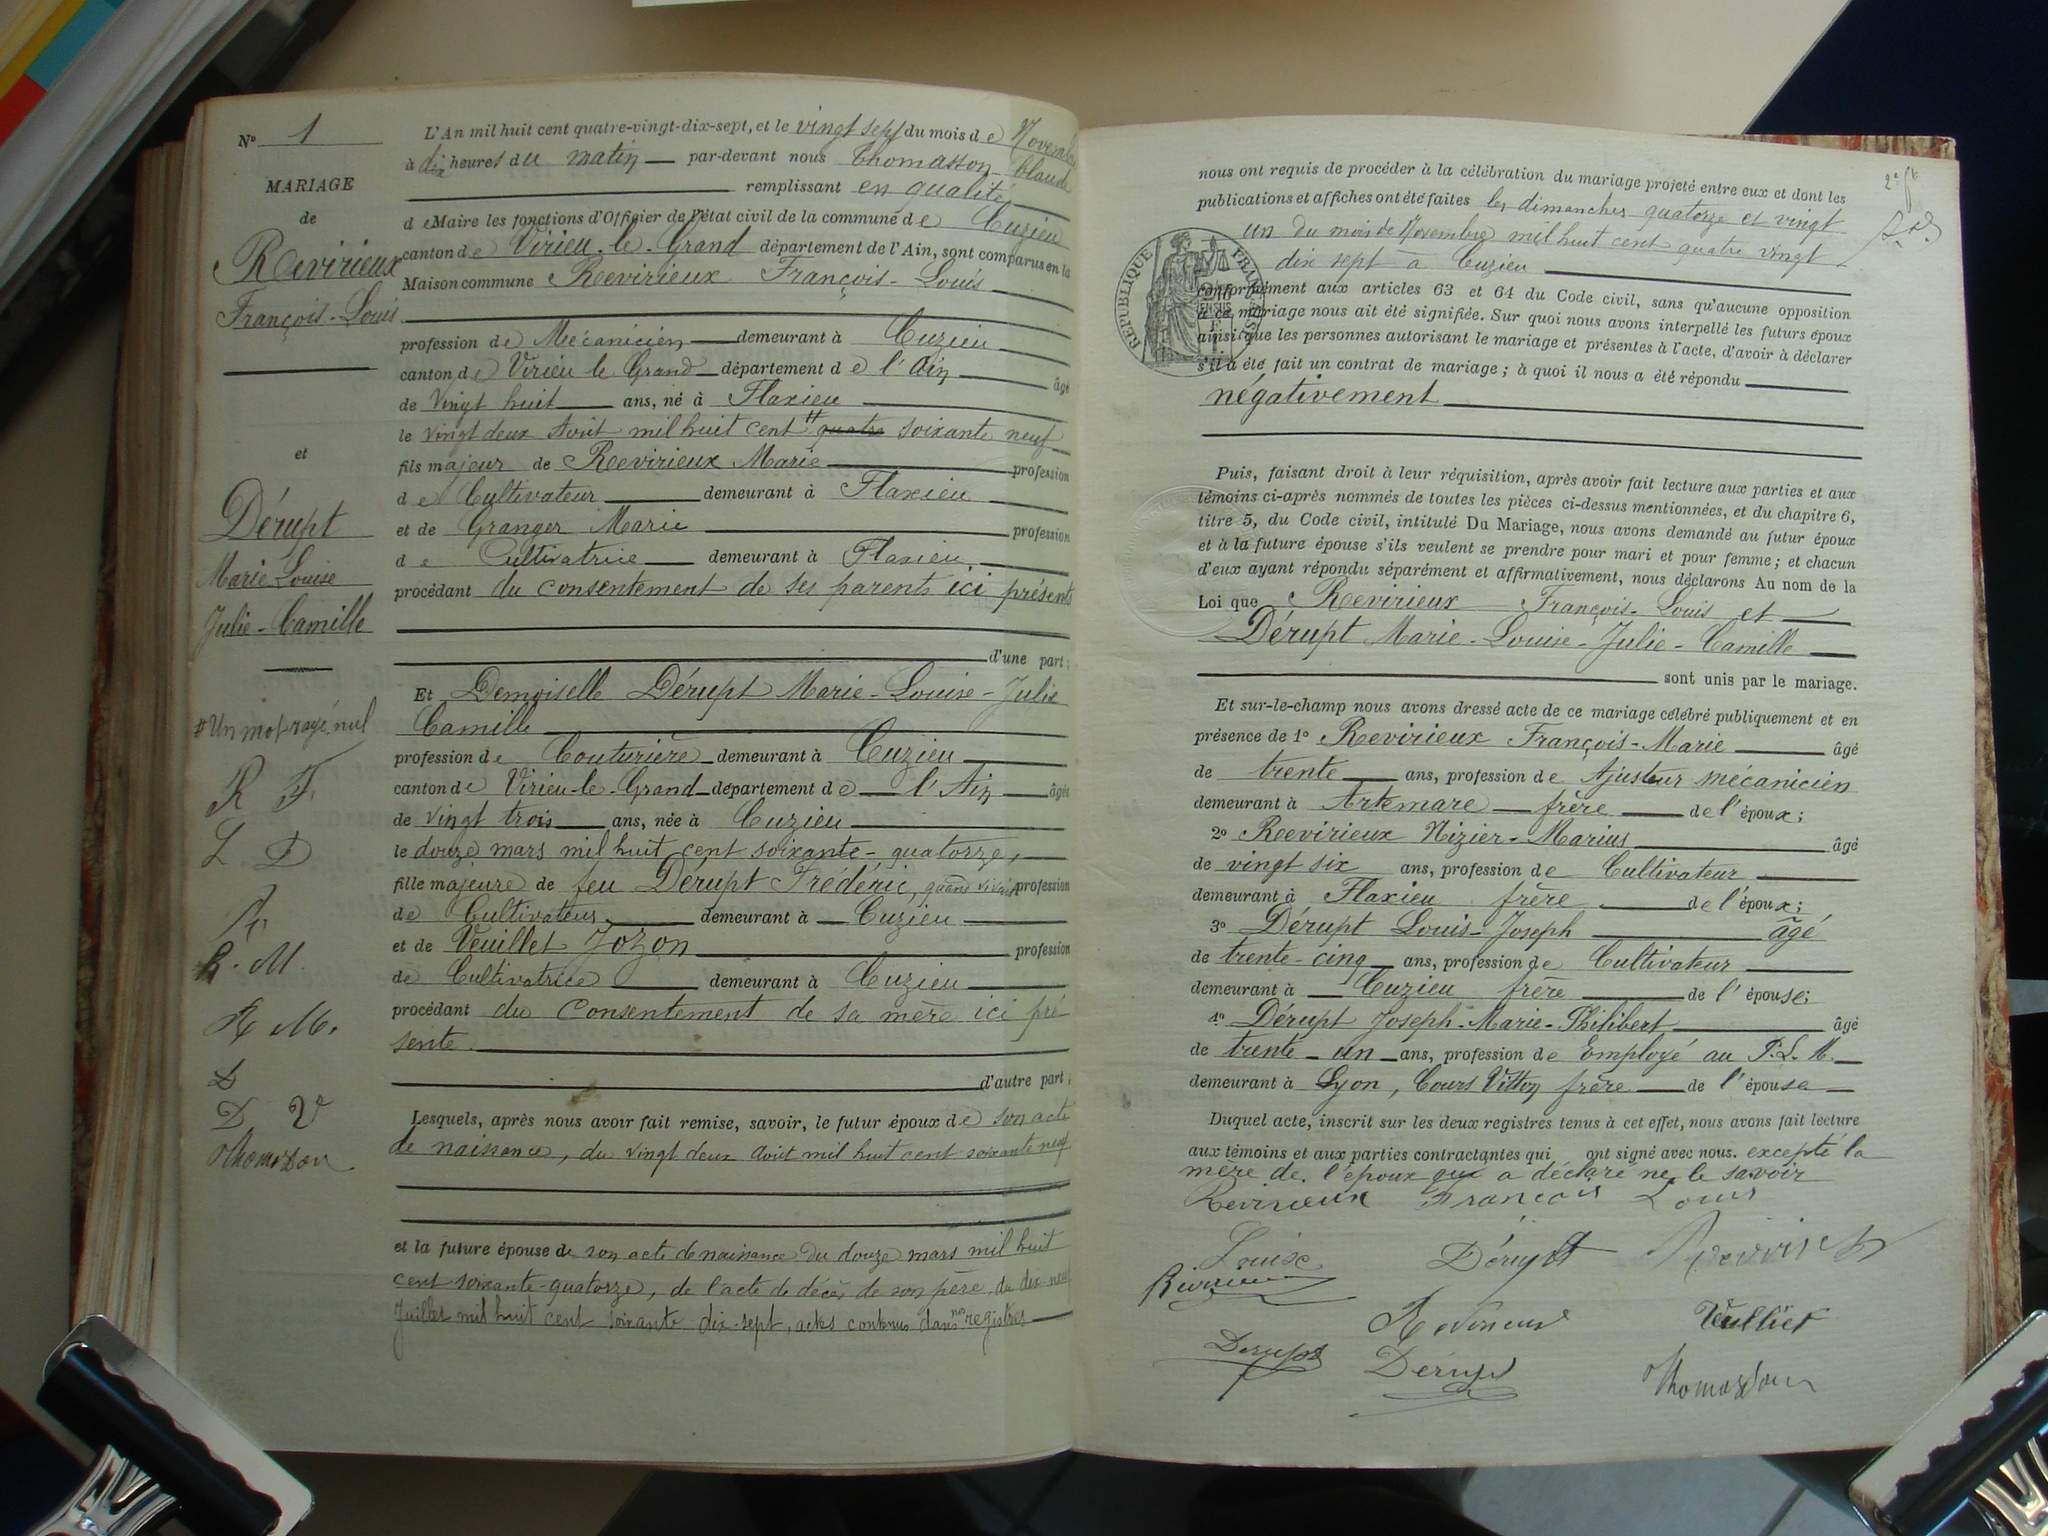 N° 1
MARIAGE
de
Revirieux
François-Louis
et
Dérupt
Marie Louise
Julie-Camille
# Un mot rayé nul
R F.
L D
R. M.
R M.
D
D V
Thomasson
L'An mil huit cent quatre-vingt-dix-sept, et le vingt sept du mois de Novembre
à dix heures du matin par-devant nous Thomasson Claude
remplissant en qualité
de Maire les fonctions d'Officier de l'état civil de la commune de Cuzieu
canton de Virieu-le-Grand département de l'Ain, sont comparus en la
Maison commune Revirieux François-Louis
profession de Mécanicien demeurant à Cuzieu
canton de Virieu le Grand département de l'Ain âgé
de Vingt huit ans, né à Flaxieu
le vingt deux Août mil huit cent # quatre soixante neuf
fils majeur de Revirieux Marie profession
de Cultivateur demeurant à Flaxieu
et de Granger Marie profession
de Cultivatrice demeurant à Flaxieu
procédant du consentement de ses parents ici présents
d'une part;
Et Demoiselle Dérupt Marie-Louise-Julie
Camille
profession de Couturière demeurant à Cuzieu
canton de Virieu-le-Grand département de l'Ain âgée
de vingt trois ans, née à Cuzieu
le douze mars mil huit cent soixante-quatorze,
fille majeure de feu Dérupt Frédéric, quand vivait profession
de Cultivateur demeurant à Cuzieu
et de Veuillet Jozon profession
de Cultivatrice demeurant à Cuzieu
procédant du consentement de sa mère ici pré-
sente.
d'autre part;
Lesquels, après nous avoir fait remise, savoir, le futur époux de son acte
de naissance, du vingt deux août mil huit cent soixante neuf
et la future épouse de son acte de naissance du douze mars mil huit
cent soixante-quatorze, de l'acte de décès de son père du dix-neuf
Juillet mil huit cent soixante dix-sept, actes contenus dans nos registres
2e ft
nous ont requis de procéder à la célébration du mariage projeté entre eux et dont les
publications et affiches ont été faites les dimanches quatorze et vingt
un du mois de Novembre mil huit cent quatre vingt
dix sept à Cuzieu
RÉPUBLIQUE FRANÇAISE
conformément aux articles 63 et 64 du Code civil, sans qu'aucune opposition
à ce mariage nous ait été signifiée. Sur quoi nous avons interpellé les futurs époux
ainsi que les personnes autorisant le mariage et présentes à l'acte, d'avoir à déclarer
s'il a été fait un contrat de mariage; à quoi il nous a été répondu
négativement
Puis, faisant droit à leur réquisition, après avoir fait lecture aux parties et aux
témoins ci-après nommés de toutes les pièces ci-dessus mentionnées, et du chapitre 6,
titre 5, du Code civil, intitulé Du Mariage, nous avons demandé au futur époux
et à la future épouse s'ils veulent se prendre pour mari et pour femme; et chacun
d'eux ayant répondu séparément et affirmativement, nous déclarons Au nom de la
Loi que Revirieux François-Louis et
Dérupt Marie-Louise-Julie-Camille
sont unis par le mariage.
Et sur-le-champ nous avons dressé acte de ce mariage célébré publiquement et en
présence de 1° Revirieux François-Marie âgé
de trente ans, profession de Ajusteur mécanicien
demeurant à Artemare frère de l'époux;
2° Revirieux Nizier-Marius âgé
de vingt six ans, profession de Cultivateur
demeurant à Flaxieu frère de l'époux;
3° Dérupt Louis-Joseph âgé
de trente-cinq ans, profession de Cultivateur
demeurant à Cuzieu frère de l'épouse;
4° Dérupt Joseph-Marie-Philibert âgé
de trente-un ans, profession de Employé au P.L.M.
demeurant à Lyon, Cours Vitton frère de l'épouse
Duquel acte, inscrit sur les deux registres tenus à cet effet, nous avons fait lecture
aux témoins et aux parties contractantes qui ont signé avec nous. excepté la
mère de l'époux qui a déclaré ne le savoir
Revirieux François Louis
Louise Dérupt Revirieux
Revirieux
Revirieux Veuillet
Dérupt Dérupt Thomasson